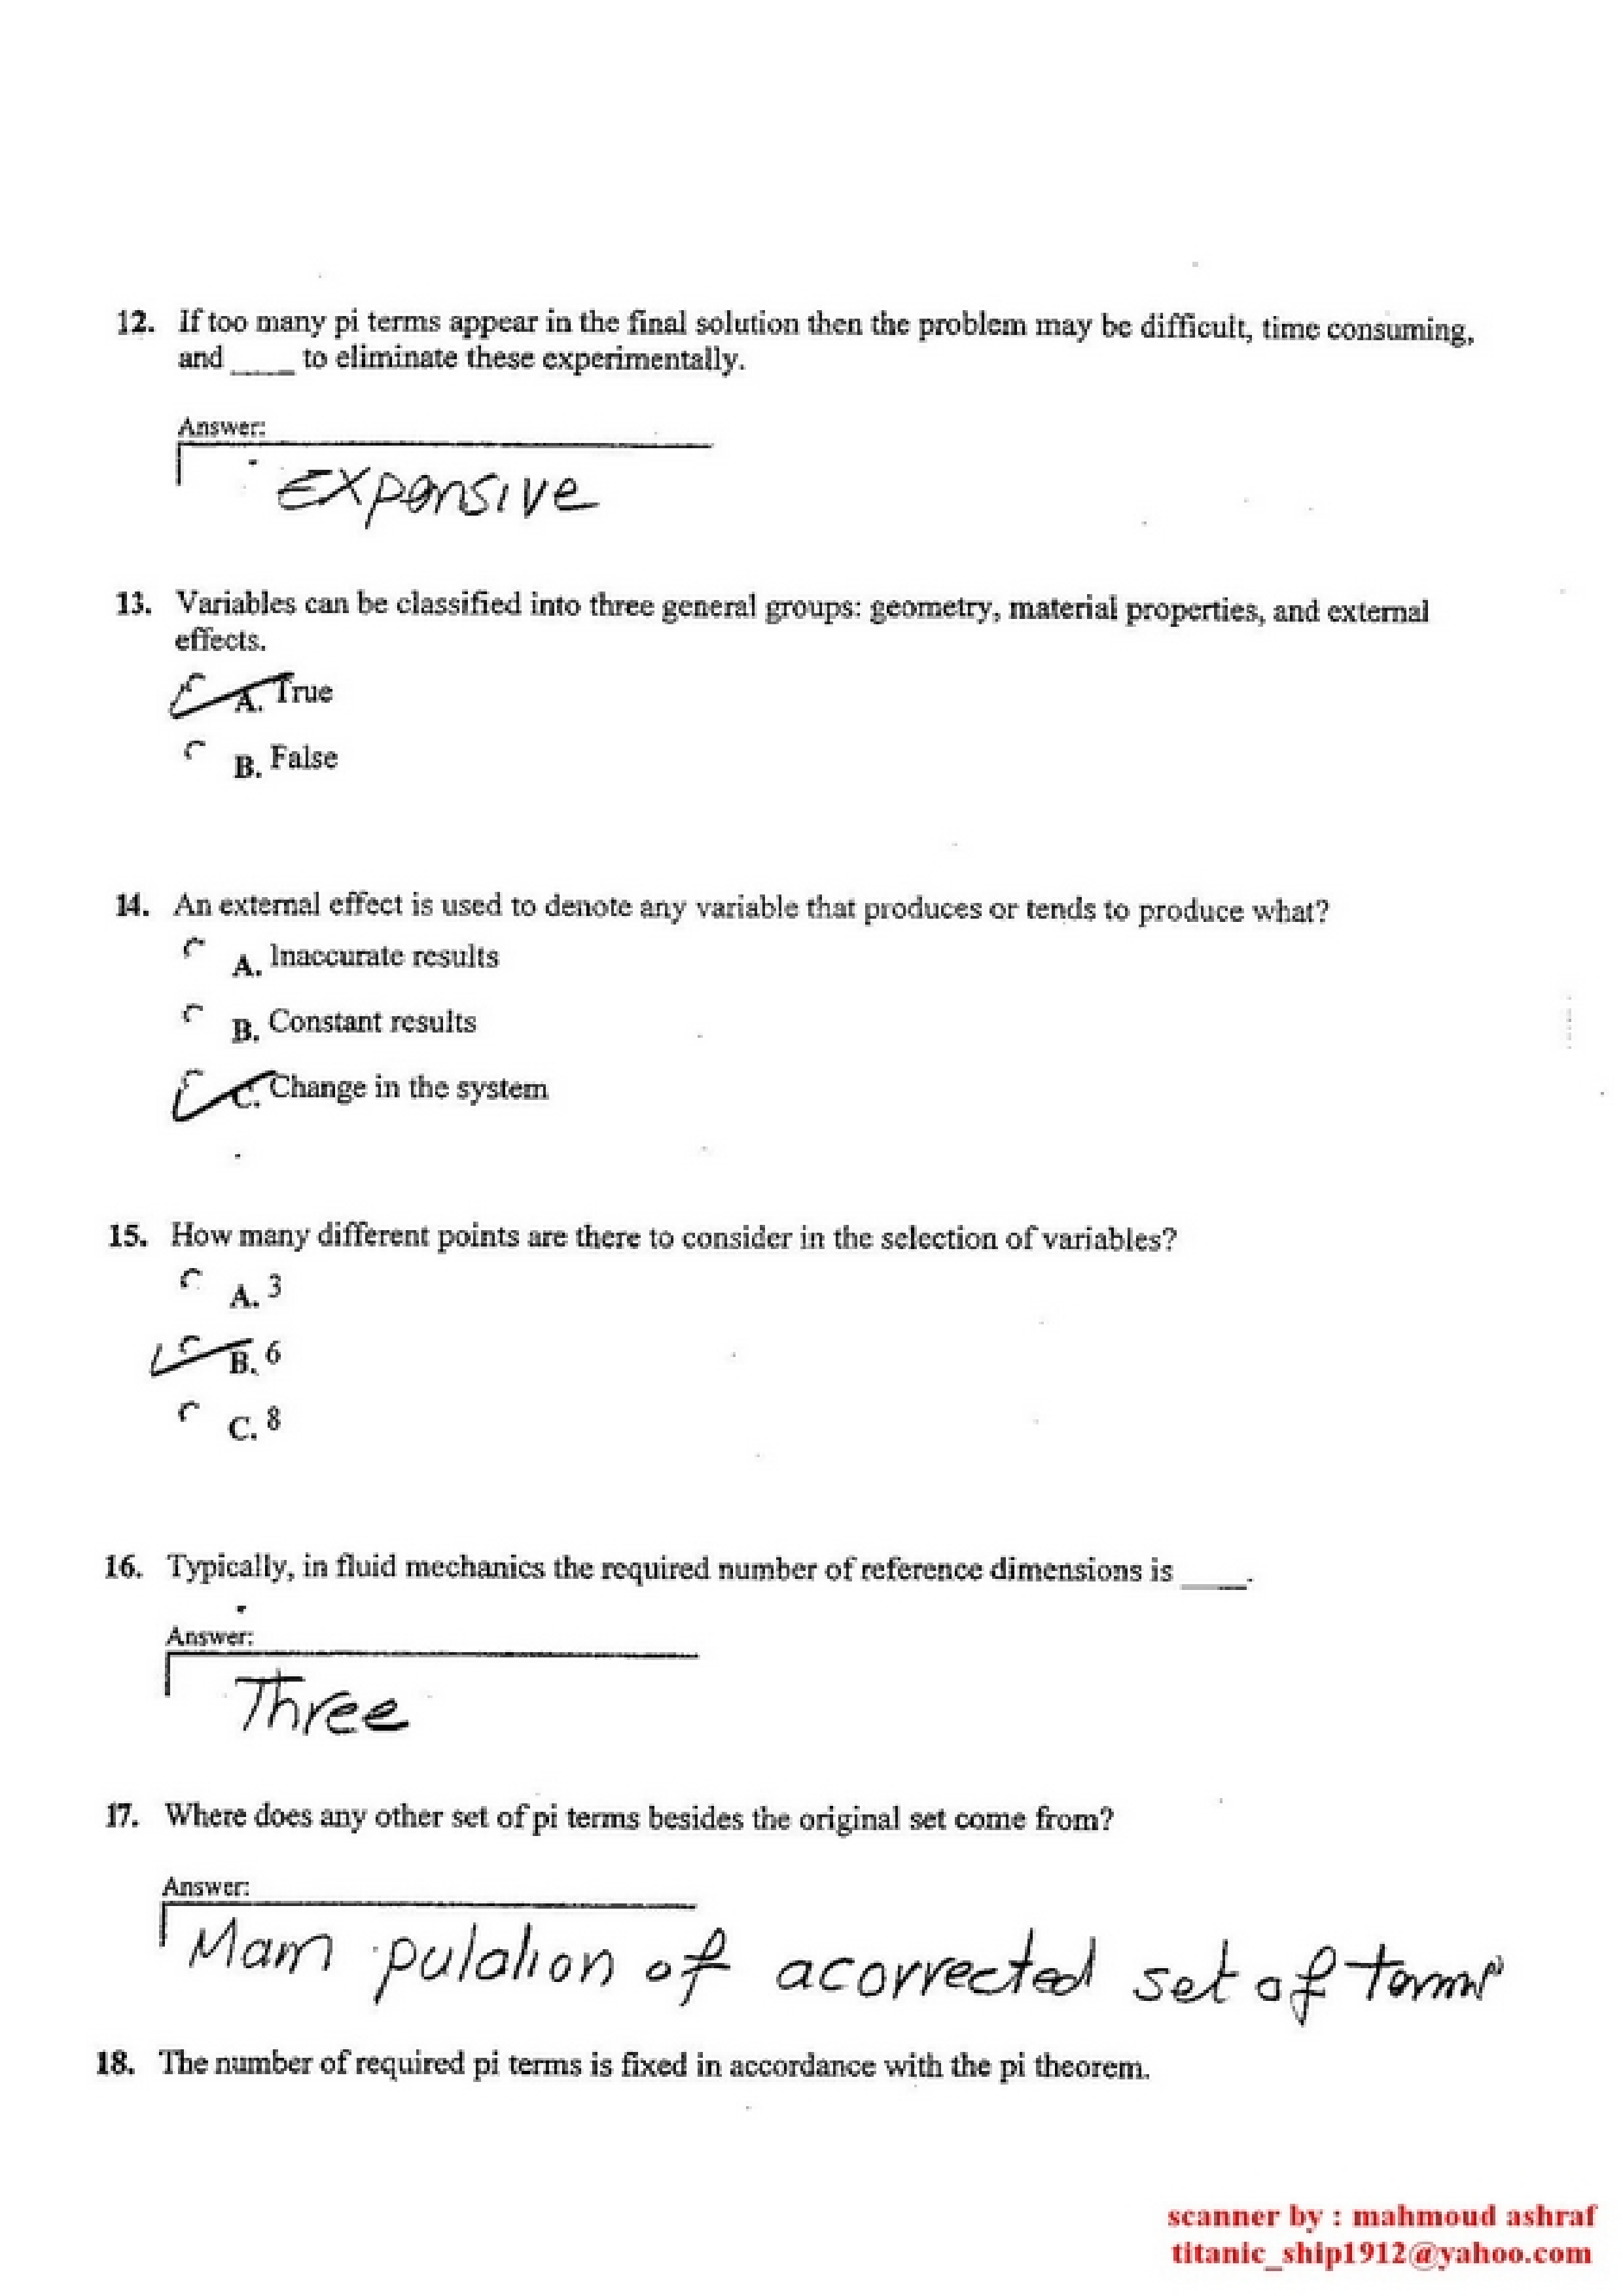 12. If too many pi terms appear in the final solution then the problem may be difficult, time consuming,
and ____ to eliminate these experimentally.
Answer:
Expensive
13. Variables can be classified into three general groups: geometry, material properties, and external
effects.
A. True
B. False
14. An external effect is used to denote any variable that produces or tends to produce what?
A. Inaccurate results
B. Constant results
C. Change in the system
15. How many different points are there to consider in the selection of variables?
A. 3
B. 6
C. 8
16. Typically, in fluid mechanics the required number of reference dimensions is ____.
Answer:
Three
17. Where does any other set of pi terms besides the original set come from?
Answer:
Mani pulation of acorrected set of terms
18. The number of required pi terms is fixed in accordance with the pi theorem.
scanner by : mahmoud ashraf
titanic_ship1912@yahoo.com